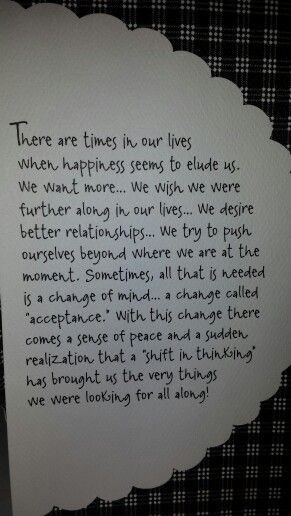 There are times in our lives
when happiness seems to elude us.
We want more... We wish we were
further along in our lives... We desire
better relationships... We try to push
ourselves beyond where we are at the
moment. Sometimes, all that is needed
is a change of mind... a change called
"acceptance." With this change there
comes a sense of peace and a sudden
realization that a "shift in thinking"
has brought us the very things
we were looking for all along!